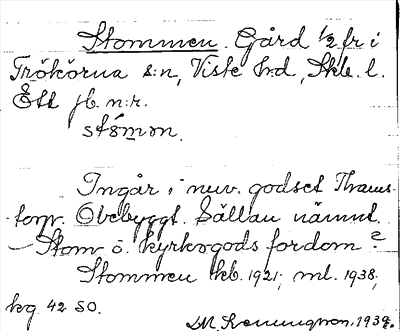 Stommen. Gård 1/2 fr i
Trökörna s:n, Viste h:d, Skb. l.
Ett jb. n:r.
Ingår i nuv. godset Thams-
torp. Obebyggt. Sällan nämnt.
— Stom o. kyrkogods fordom?
Stommen kb. 1921; ml. 1938;
kg. 42 SO.
1939.